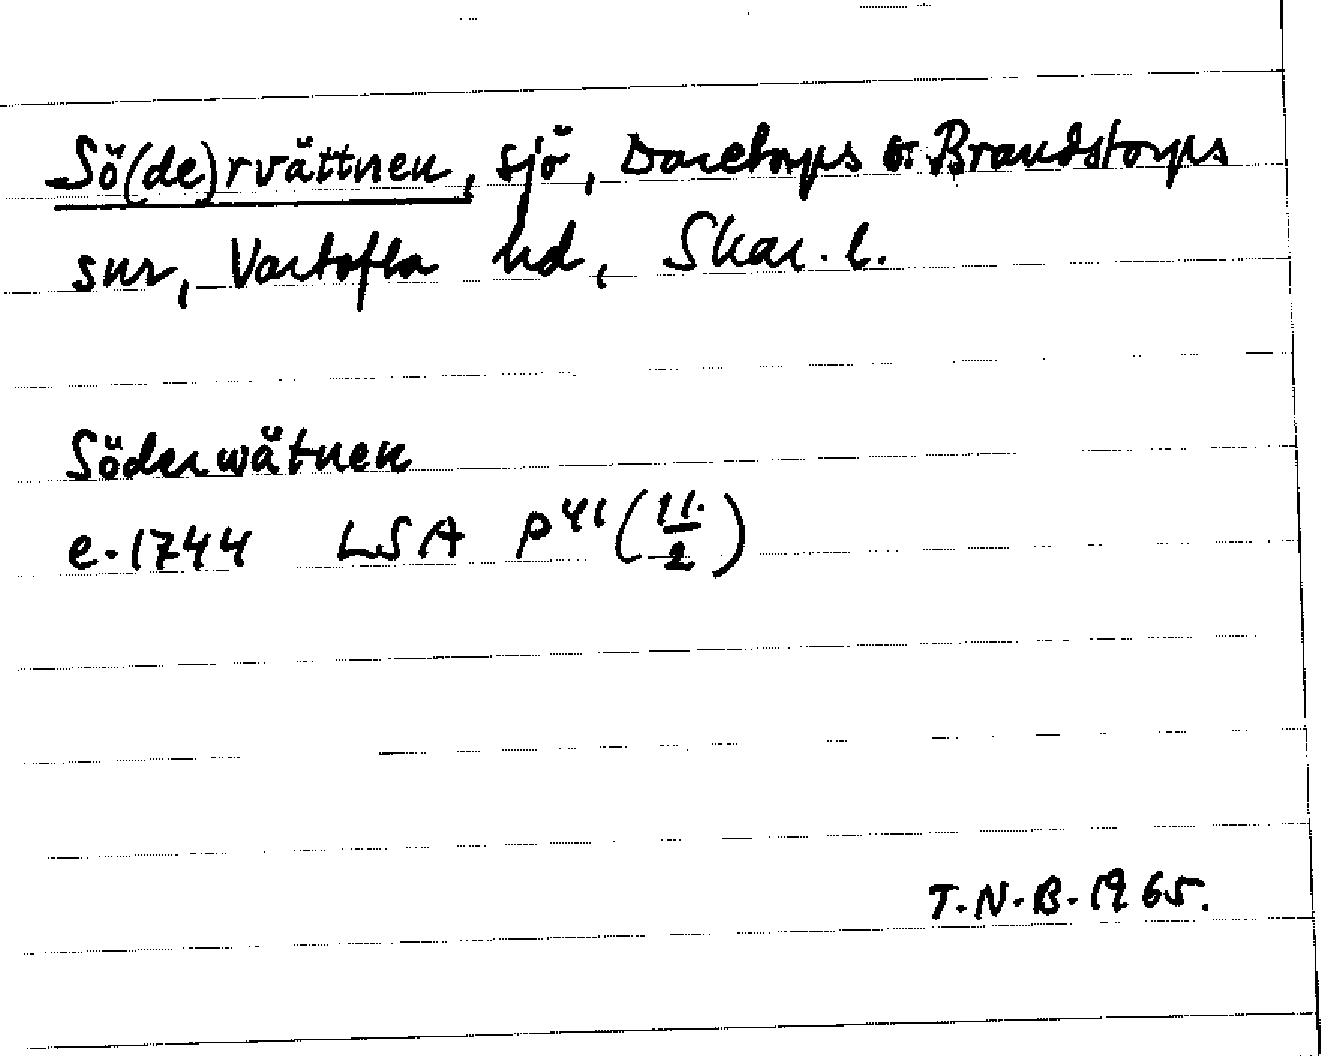 Sö(de)rvättnen, sjö, Daretorps o. Brandstorps
snr, Vartofta hd, Skar. l.
Söderwätnen
e. 1744 LSA P41 (11./2)
T.N.B. 1965.